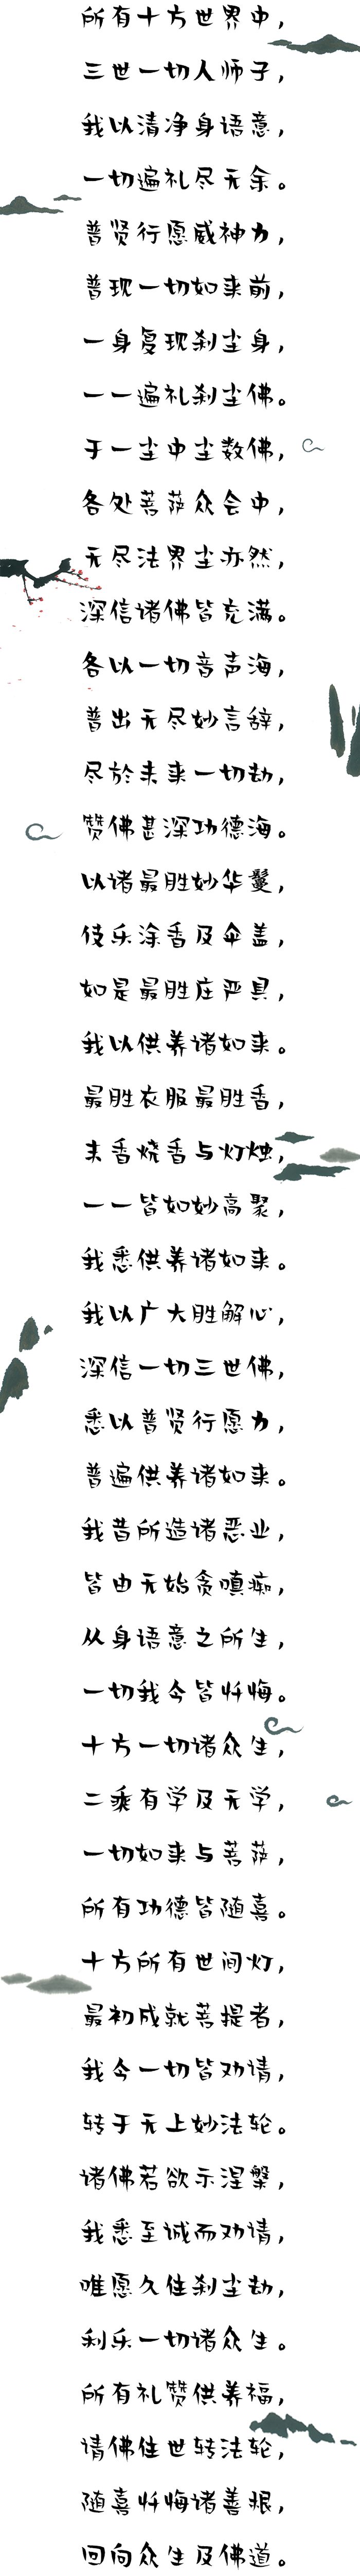 所有十方世界中，
三世一切人师子，
我以清净身语意，
一切遍礼尽无余。
普贤行愿威神力，
普现一切如来前，
一身复现刹尘身，
一一遍礼刹尘佛。
于一尘中尘数佛，
各处菩萨众会中，
无尽法界尘亦然，
深信诸佛皆充满。
各以一切音声海，
普出无尽妙言辞，
尽於未来一切劫，
赞佛甚深功德海。
以诸最胜妙华鬘，
伎乐涂香及伞盖，
如是最胜庄严具，
我以供养诸如来。
最胜衣服最胜香，
末香烧香与灯烛，
一一皆如妙高聚，
我悉供养诸如来。
我以广大胜解心，
深信一切三世佛，
悉以普贤行愿力，
普遍供养诸如来。
我昔所造诸恶业，
皆由无始贪嗔痴，
从身语意之所生，
一切我今皆忏悔。
十方一切诸众生，
二乘有学及无学，
一切如来与菩萨，
所有功德皆随喜。
十方所有世间灯，
最初成就菩提者，
我今一切皆劝请，
转于无上妙法轮。
诸佛若欲示涅槃，
我悉至诚而劝请，
唯愿久住刹尘劫，
利乐一切诸众生。
所有礼赞供养福，
请佛住世转法轮，
随喜忏悔诸善根，
回向众生及佛道。